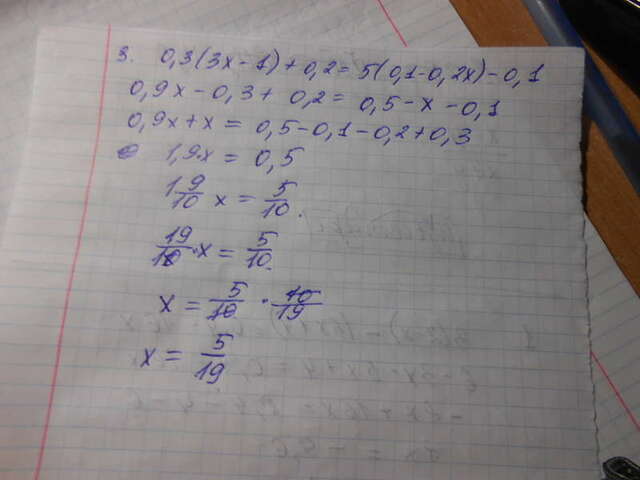 3. 0,3(3x-1)+0,2=5(0,1-0,2x)-0,1
0,9x-0,3+0,2=0,5-x-0,1
0,9x+x=0,5-0,1-0,2+0,3
1,9x=0,5
1 9/10 x = 5/10.
19/10 · x = 5/10.
x = 5/10 · 10/19
x = 5/19